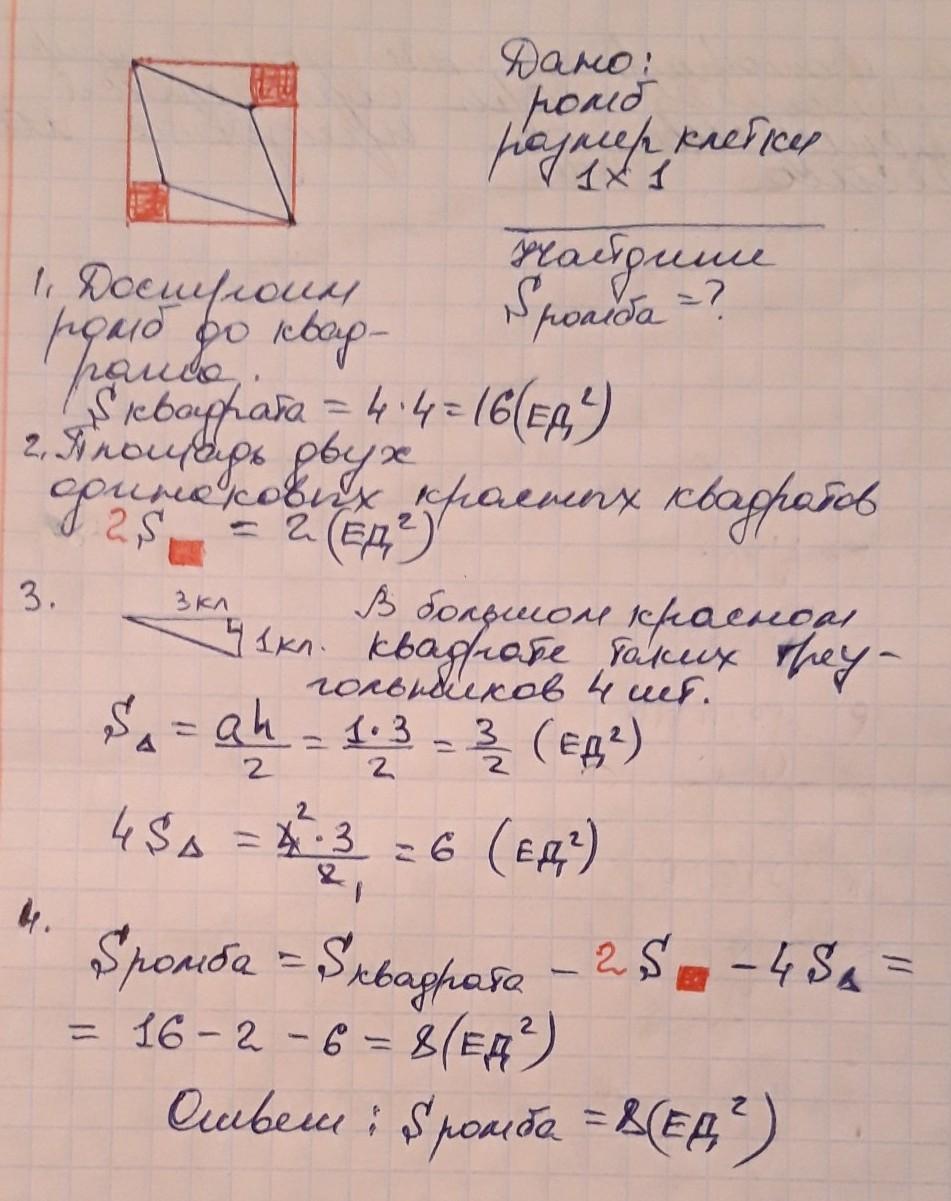 Дано:
ромб
размер клетки
1х1
Найдите
Sромба = ?
1. Достроим
ромб до квад-
рата.
Sквадрата = 4·4=16(ЕД²)
2. Площадь двух
одинаковых красных квадратов
2S■ = 2(ЕД²)
3.
3кл
1кл.
В большом красном
квадрате таких треу-
гольников 4 шт.
S△ = ah/2 = 1·3/2 = 3/2 (ЕД²)
4S△ = 4²·3/2₁ = 6 (ЕД²)
4.
Sромба = Sквадрата – 2S■ – 4S△ =
= 16 – 2 – 6 = 8(ЕД²)
Ответ: Sромба = 8(ЕД²)